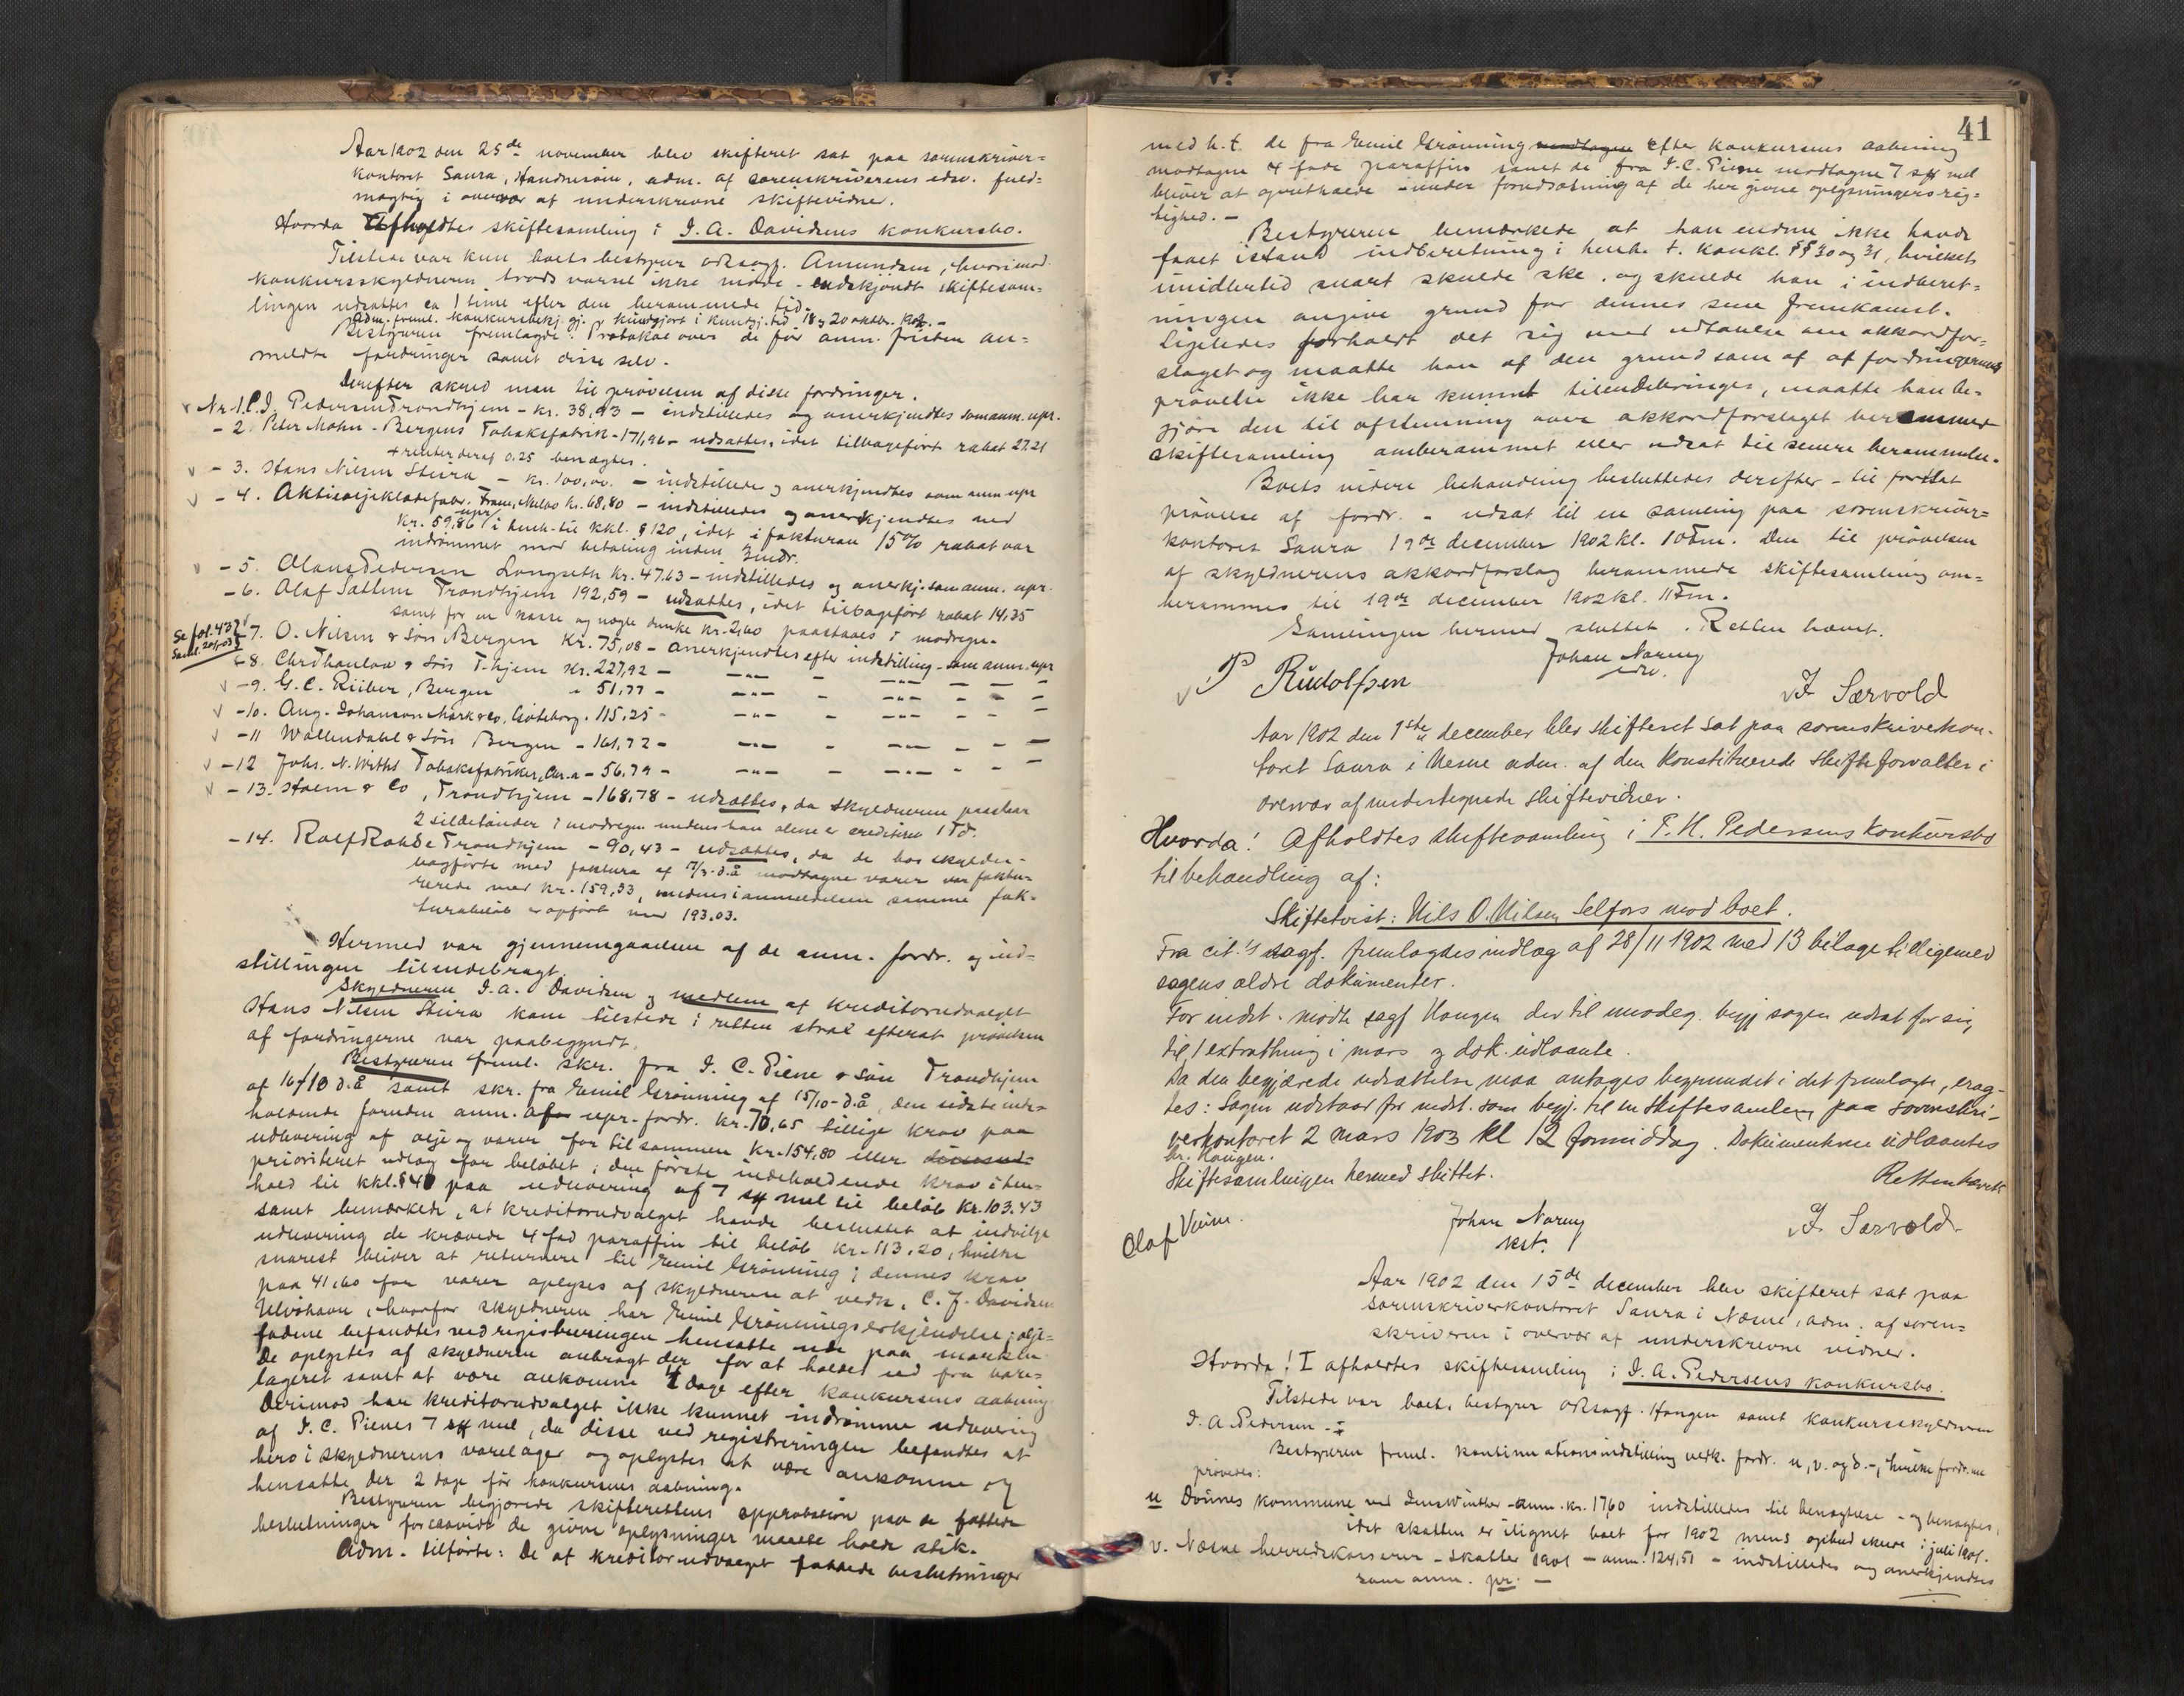 Aar 1902 den 25de november blev skifteret sat paa sorenskriver=
kontoret Saura, Handnesøen, adm. af sorenskriverens edsv. fuld=
mægtig i overvær af underskrevne skiftevidner.
Hvorda Afholdtes skiftesamling i J. A. Davidsens konkursbo.
Tilstede var kun boets bestyrer oRsagf. Amundsen, hvorimod
konkursskyldneren trods varsel ikke mødte - endskjøndt skiftesam=
lingen udsattes ca 1 time efter den berammede tid.
Adm. freml. konkursbekj.gj. kundgjort i kundgj.tid. 18 og 20 oktbr. 1902. -
Bestyreren fremlagde: Protokol over de før anm. fristen an=
meldte fordringer samt disse selv.
Derefter skred man til prøvelsen af disse fordringer.
Nr. 1. C. J. Pedersen Trondhjem - kr. 38,93 - indstilledes og anerkjendtes som anm. upr.
- 2. Peter Mohn - Bergens Tobaksfabrik - 171,96 - udsattes, idet tilbageført rabat 27.21
+ renter deraf 0.25 benægtes.
- 3. Hans Nilsen Stuira - kr. 100,00. - indstilledes og anerkjendtes som anm upr
- 4. Aktieoljeklædefabr. Fram, Melbo kr. 68,80 - indstilledes og anerkjendtes med
kr. 59,86 upr i henh. til kkl. § 120, idet i fakturan 15% rabat var
indrømmet mod betaling inden 3 mdr.
- 5. Olaus Pedersen Langseth kr. 47.63 - indstilledes og anerkj. som anm. upr.
- 6. Olaf Sættem Trondhjem 192,59 - udsattes, idet tilbageført rabat 14,35
samt for en kasse og nogle dunke kr. 2,60 paastaaes i modregn.
Se fol. 437
Saml. 20/1-03
- 7. O. Nilsen & Søn Bergen kr. 75,08 - anerkjendtes efter indstilling - som anm. upr
- 8. Chr Thaulow & Søn T-hjem kr. 227,92 - -"- - -"- - - -
- 9. G. C. Riiber, Bergen " 51,77 - -"- - -"- - - -
- 10. Aug. Johanson Mark & Co, Göteborg. 115,25 - -"- - -"- - - -
- 11 Wallendahl & Søn Bergen - 161,72 - -"- - -"- - - -
- 12 Johs. N. Withs Tobaksfabriker, Chr.a - 56,79 - -"- - -"- - - -
- 13. Holm & Co, Trondhjem - 168,78 - udsattes, da skyldneren paastaar
2 sildetønder i modregn. medens han alene er crediteret 1 Td.
- 14. Rolf Rohde Trondhjem - 90,43 - udsattes, da de hos skyldn.
bogførte med faktura af 7/3-d.å modtagne varer var faktu-
rerede med kr. 159,93, medens i anmeldelsen samme fak-
turabeløb er opført med 193.03.
Hermed var gjennemgaaelsen af de anm. fordr. og ind-
stillingen tilendebragt.
Skyldneren J. A. Davidsen og medlem af kreditorudvalget
Hans Nilsen Stuira kom tilstede i retten strax efterat prøvelsen
af fordringerne var paabegyndt.
Bestyreren freml. skr. fra J. C. Piene & Søn Trondhjem
af 16/10 d.å samt skr. fra Emil Grønning af 15/10-d.å, den sidste inde-
holdende foruden anm. af en upr. fordr. kr. 70,65 tillige krav paa
udlevering af olje og varer for tilsammen kr. 154,80 eller
prioriteret udlæg for beløbet; den første indeholdende krav i hen-
hold til kkl. § 40 paa udlevering af 7 sk mel til beløb kr. 103.43
samt bemærkede, at kreditorudvalget havde besluttet at indvilge
udlevering de krævede 4 fad paraffin til beløb kr. 113.20, hvilke
snarest bliver at returnere til Emil Grønning; dennes krav
paa 41,60 for varer oplyses af skyldneren at vedk. C. J. Davidsen
Ulvshavn, hvorfor skyldneren har Emil Grønnings erkjendelse; olje-
fadene befandtes ved registreringen hensatte ude paa marken.
De oplystes af skyldneren anbragt der for at holdes ud fra vare-
lageret samt at være ankomne 1 dage efter konkursens aabning
Derimod har kreditorudvalget ikke kunnet indrømme udlevering
af J. C. Pienes 7 sk mel, da disse ved registreringen befandtes at
bero i skyldnerens varelager og oplystes at være ankomne og
hensatte der 2 dage før konkursens aabning.
Bestyreren begjærede skifterettens approbation paa de fattede
beslutninger forsaavidt de givne oplysninger maatte holde stik.
Adm. tilførte: De af kreditorudvalget fattede beslutninger
41
med h.t. de fra Emil Grønning modtagne efter konkursens aabning
modtagne 4 fade paraffin samt de fra J. C. Piene modtagne 7 sk mel
bliver at opretholde under forudsætning af de her givne oplysningers rig-
tighed. -
Bestyreren bemærkede at han endnu ikke havde
faaet istand indberetning i henh. t. konkl. §§ 30 og 31, hvilket
imidlertid snart skulde ske, og skulde han i indberet-
ningen angive grund for dennes sene fremkomst.
Ligeledes forholdt det sig med udtalelse om akkordfor-
slaget og maatte han af den grund som af at fordringernes
prøvelse ikke har kunnet tilendebringes, maatte han be-
gjære den til afstemning over akkordforslaget berammede
skiftesamling omberammet eller udsat til senere berammelse.
Boets videre behandling besluttedes derefter - til fortsat
prøvelse af fordr. - udsat til en samling paa sorenskriver=
kontoret Saura 19de december 1902 kl. 10 Fm. Den til prøvelsen
af skyldnerens akkordforslag berammede skiftesamling om=
berammes til 19de december 1902 kl. 11 Fm.
Samlingen hermed sluttet. Retten hævet.
Johan Narum
edsv.
P Rudolfsen
J. Sørvold
Aar 1902 den 1ste december blev skifteret sat paa sorenskriverkon-
toret Saura i Nesne adm. af den konstituerede skifteforvalter i
overvær af undertegnede skiftevidner.
Hvorda! Afholdtes skiftesamling i P. H. Pedersens konkursbo
til behandling af:
Skiftetvist: Nils O. Nilsen Selfors mod boet.
Fra cit.'s sagf. fremlagdes indlæg af 28/11 1902 med 13 bilage tilligemed
sagens ældre dokumenter.
For indst. mødte sagf Haugen der til imødeg. begj sagen udsat for sig,
til 1 extrathing i mars og dok. udlaante.
Da den begjærede udsættelse maa antages begrundet i det fremlagte, erag-
tes: Sagen udstaar for indst. som begj. til en skiftesamling paa sorenskri-
verkontoret 2 mars 1903 kl 12 formiddag. Dokumenterne udlaantes
hr. Haugen.
Skiftesamlingen hermed sluttet.
Retten hævet
Olaf Vium.
Johan Narum
kst.
J. Sørvold
Aar 1902 den 15de december blev skifteret sat paa
sorenskriverkontoret Saura i Næsne, adm. af soren=
skriveren i overvær af underskrevne vidner.
Hvorda! I afholdtes skiftesamling i J. A. Pedersens konkursbo.
Tilstede var boets bestyrer oRsagf. Haugen samt konkursskyldneren
J. A Pedersen -
Bestyreren freml. kontinuationsindstilling vedk. fordr. u, v. og d. -, hvilke fordr. ne
prøvedes:
u Dønnes kommune ved Jens Winther - anm. kr. 17,60 indstilledes til benægtelse - og benægtes,
idet skatten er ilignet boet for 1902 mens opbud skede i juli 1901.
v. Næsne herredskasserer - skatter 1901 - anm. 124,51 - indstilledes og anerkjendtes
som anm. pr. -